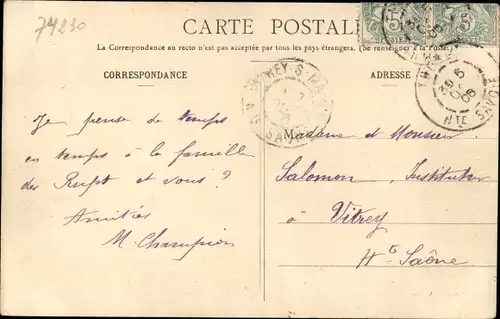 74230
CARTE POSTALE
La Correspondance au recto n'est pas acceptée par tous les pays étrangers. (Se renseigner à la Poste)
CORRESPONDANCE
ADRESSE
Je pense de temps
en temps à la famille
des et vous ?
Amitiés
M. Champion
Madame et Monsieur
Salomon, Instituteur
à Vitrey
Hte Saône
5
5
Hte SAVOIE